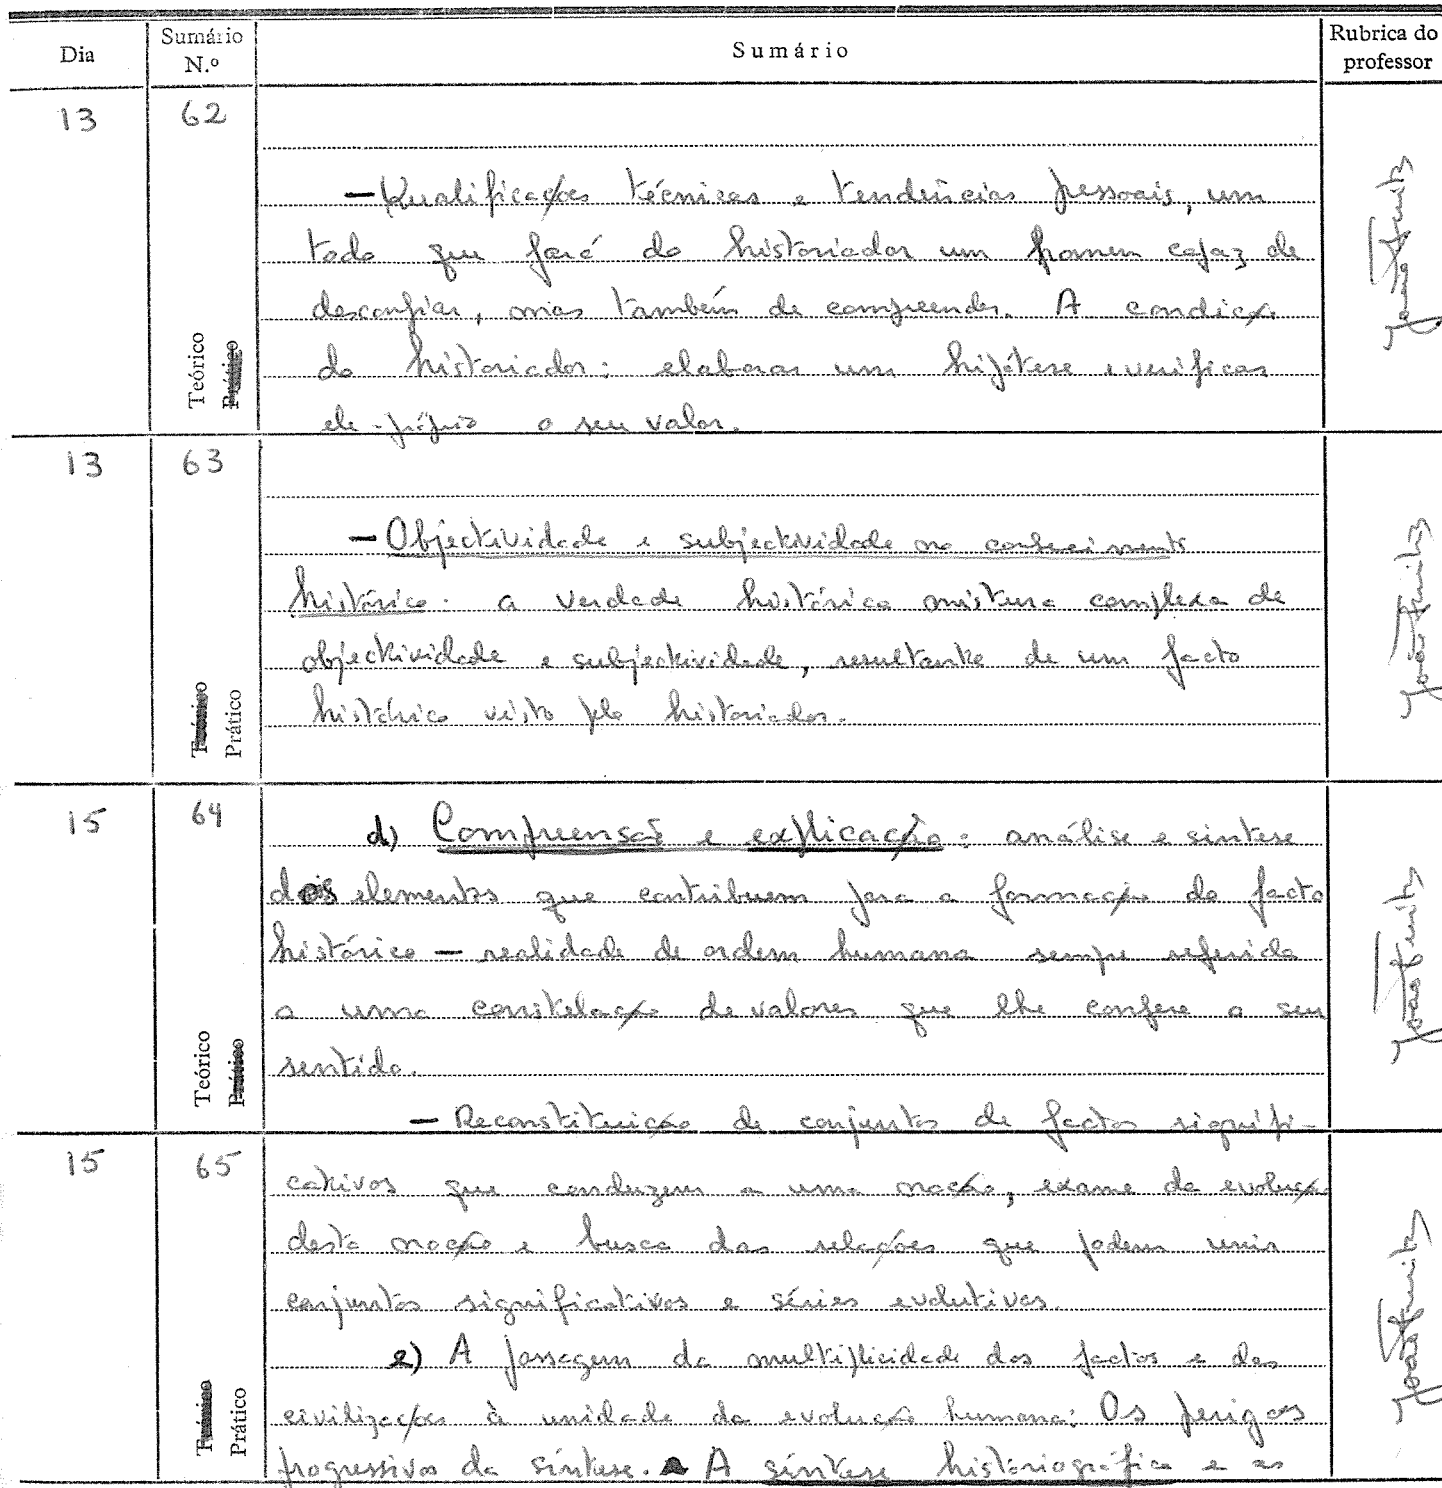 Dia Sumário N.º Sumário Rubrica do professor
13 62
— Qualificações técnicas e tendências pessoais, um
todo que fará do historiador um homem capaz de
desconfiar, mas também de compreender. A condição
do historiador: elaborar um hipótese e verificar
ele-próprio o seu valor.
Teórico Prático
13 63
— Objectividade e subjectividade no conhecimento
histórico. a verdade histórica mistura complexa de
objectividade e subjectividade, resultante de um facto
histórico visto pelo historiador.
Teórico Prático
15 64
d) Compreensão e explicação: análise e sintese
dos elementos que contribuem para a formação do facto
histórico — realidade de ordem humana sempre referida
a uma constelação de valores que lhe confere o seu
sentido.
— Reconstituição de conjuntos de factos signifi-
Teórico Prático
15 65
cativos que conduzem a uma noção, exame da evolução
desta noção e busca das relações que podem unir
conjuntos significativos e séries evolutivas.
e) A passagem da multiplicidade dos factos e das
civilizações à unidade da evolução humana: Os perigos
progressivos da síntese. A síntese historiográfica e as
Teórico Prático